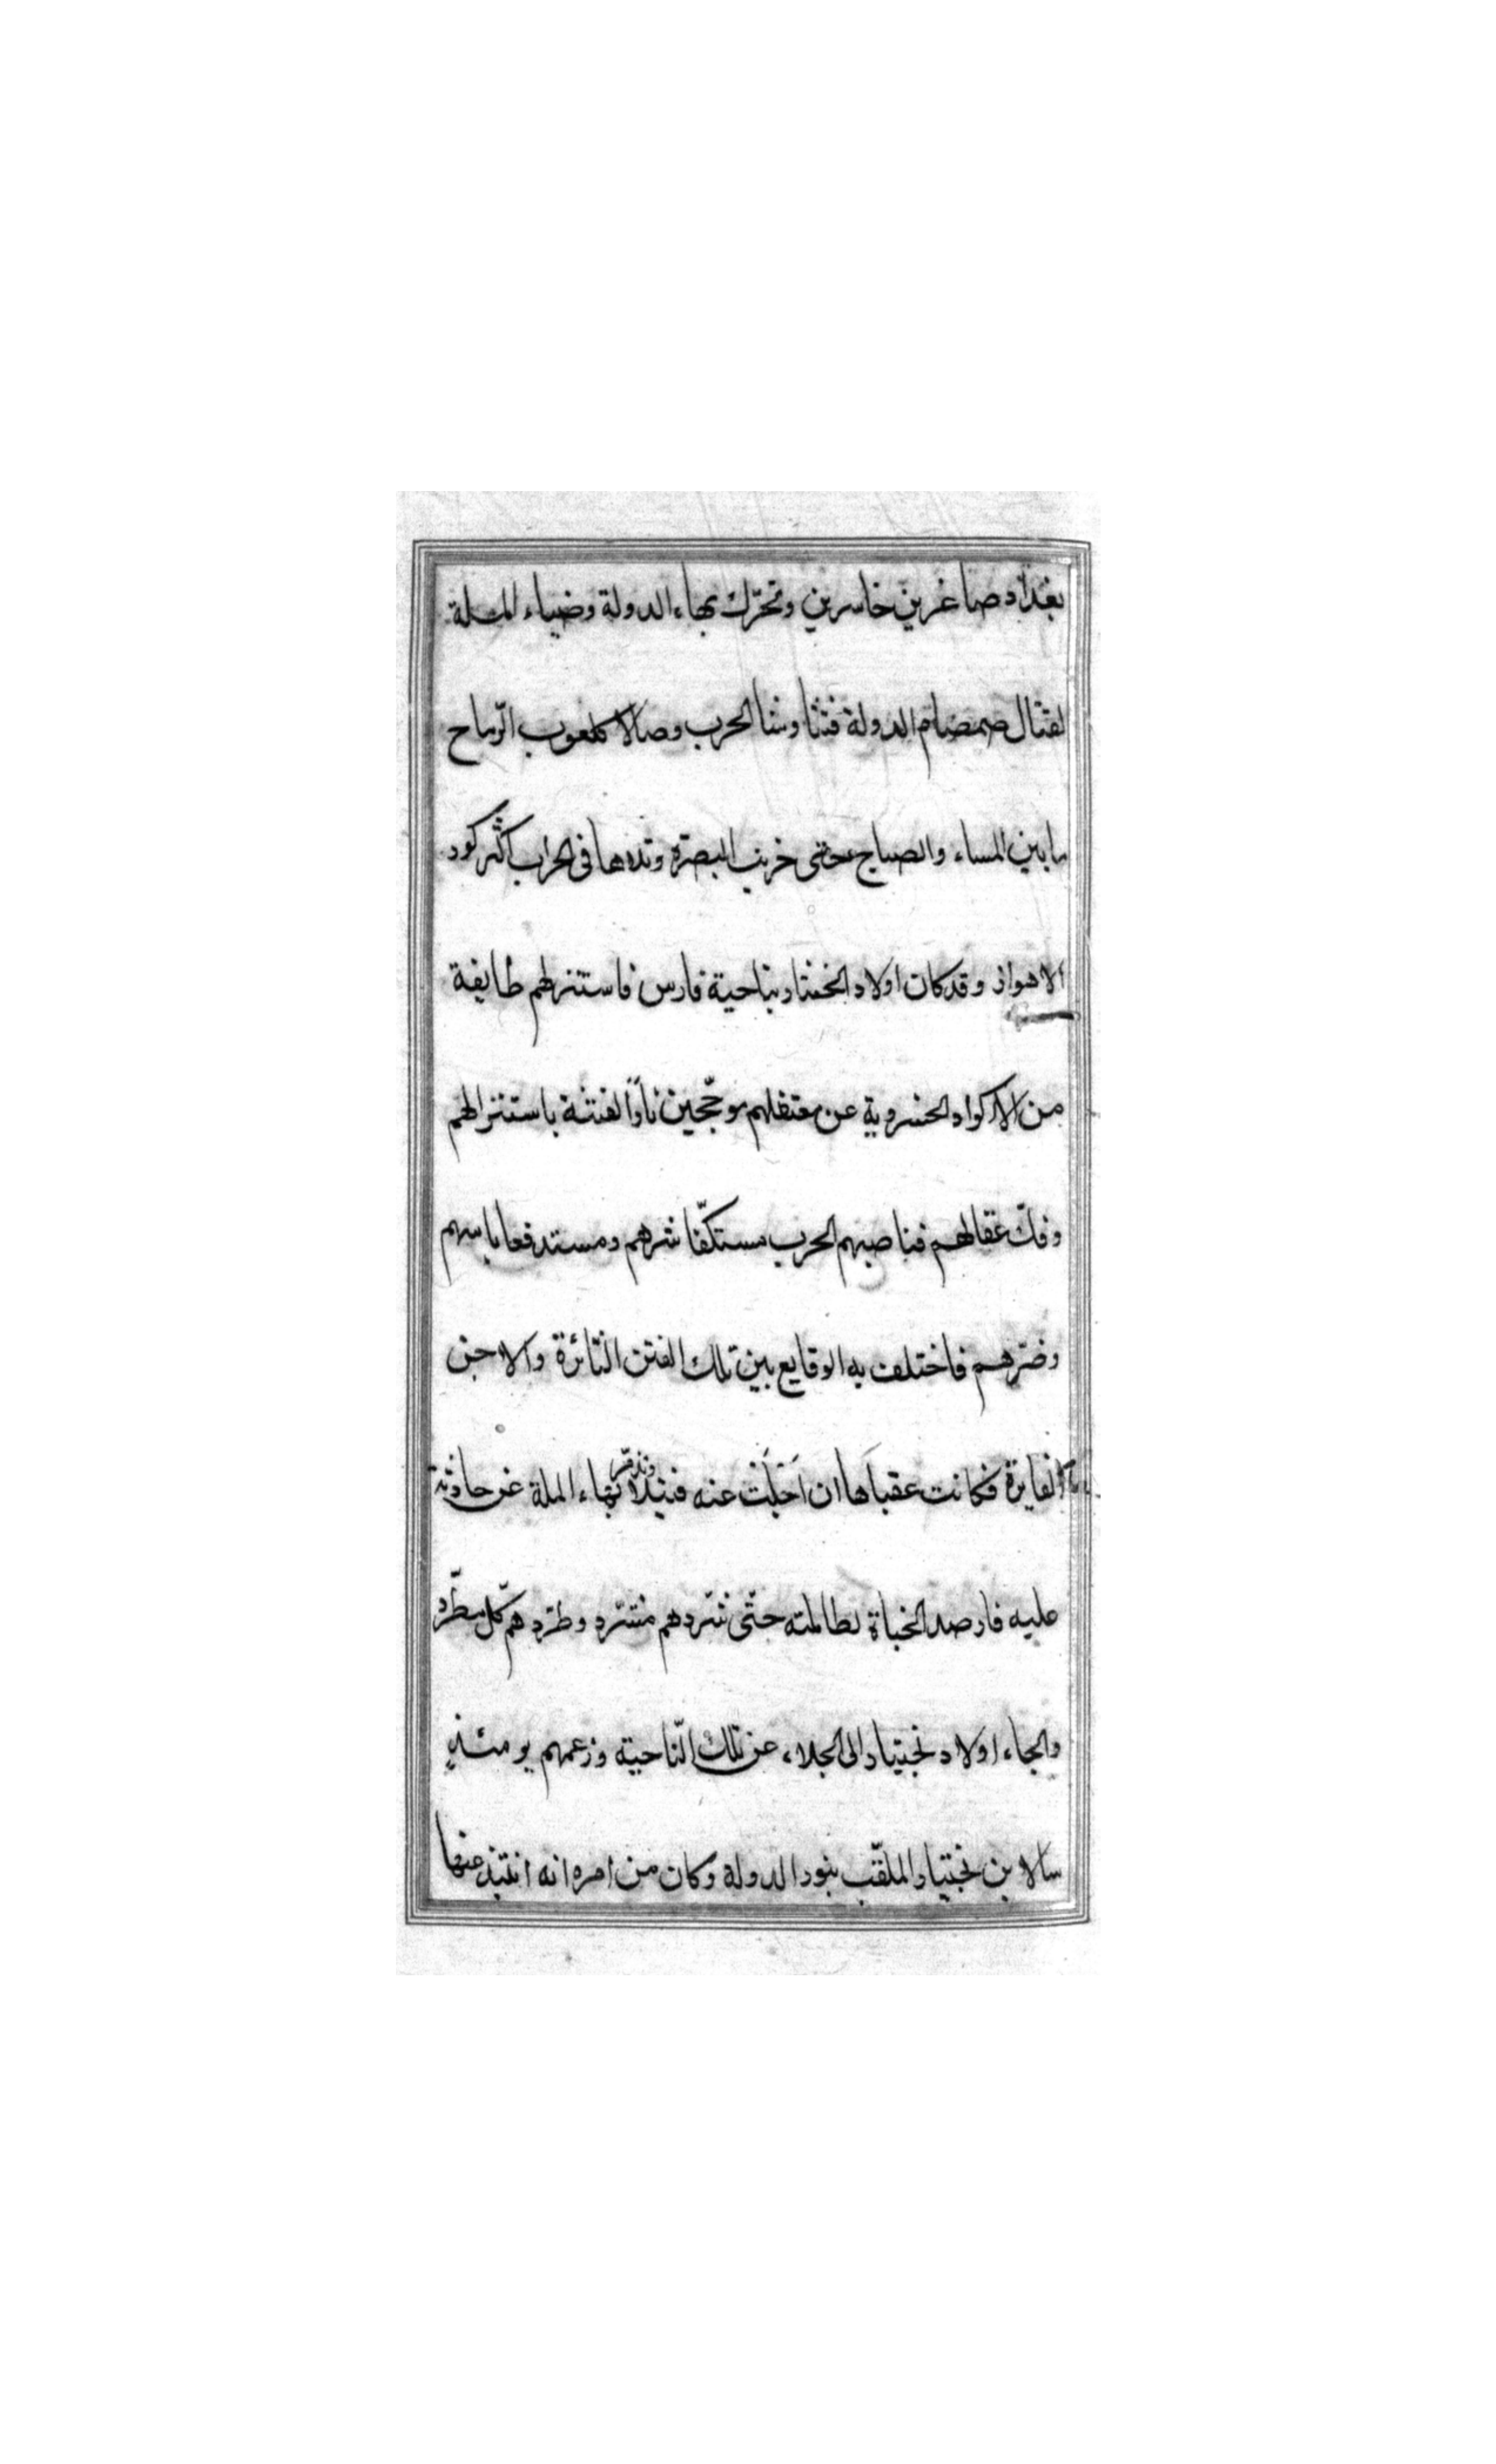 بغداد صاغرين خاسرين وتحرّك بهاء الدولة وضياء الملة
لقتال صمصام الدولة فتناوشا الحرب وصالا كلعوب الرّماح
ما بين المساء والصباح حتى خربت البصرة وتلاها فى الخراب اكثر كور
الاهواز وقد كان اولاد بناحية فارس فاستنزلهم طايفة
من الاكراد الخسروية عن معتقلهم موجّجين نار الفتنة باستنزالهم
وفكّ عقالهم فناصبهم الحرب مستكفّا شرهم ومستدفعا باسهم
وضرّهم فاختلف به الوقايع بين تلك الفتن الثائرة والاحن
الفايرة فكانت عقباها ان اجلت عنه قتيلا وتدقر بهاء الملة عن حادثة
عليه فارصد لطالمته حتّى شرّدهم مشرّد وطرّدهم كل مطرّد
والجاء اولاد بختيار الى الجلاء عن تلك النّاحية وزعمهم يومئذ
سالار بن بختيار الملقّب بنور الدولة وكان من امره انه انتبذ عنها